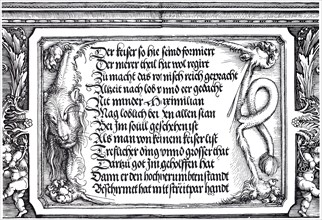 Der keiser so hie seind formiert
Der merer theil hat wol regirt
Zu macht das römisch reich gepracht
Allzeit nach lob unnd eer gedacht
Nit minder Maximilian
Mag löblich bey in allen stan
Bey Im sovil geschehen ist
Als man von keinem keiser list
Treflicher ding unnd grosser that
Dartzu got Im geholffen hat
Dann er den hochverumbten standt
Beschirmet hat mit streitpar handt